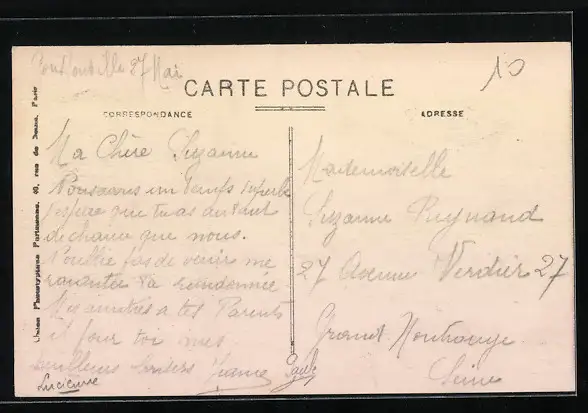 27 Mai
10
CARTE POSTALE
CORRESPONDANCE
ADRESSE
Ma Chère Suzanne
un temps superbe
j'espère que tu as autant
de chance que nous.
N'oublie pas de venir me
raconter ta randonnée
Mes amitiés à tes Parents
et pour toi mes
meilleurs baisers Jeanne Paule
Lucienne
Mademoiselle
Suzanne Reynaud
27 Avenue Verdier 27
Grand Montrouge
Seine
Union Phototypique Parisienne, rue de Paris